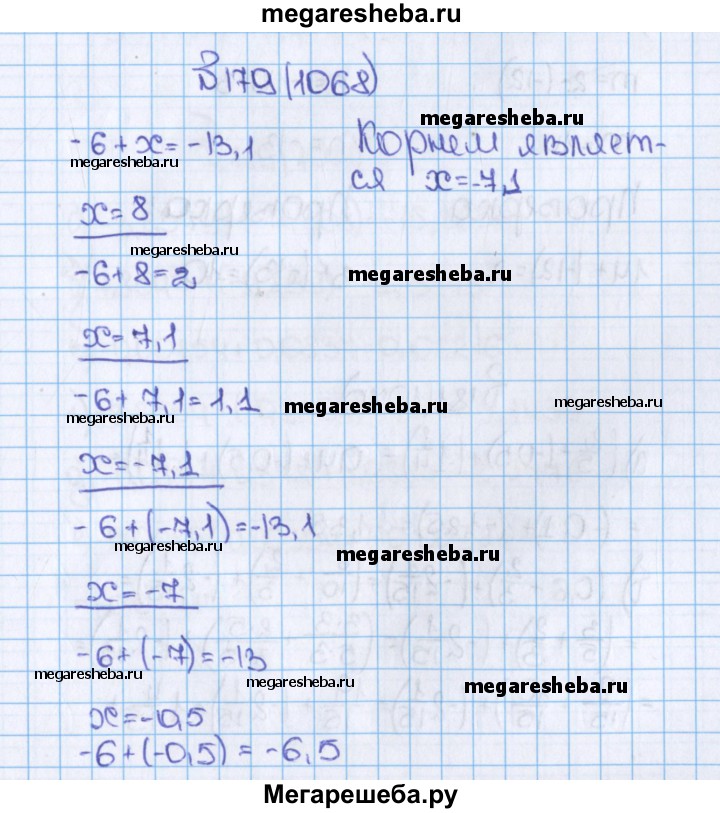 megaresheba.ru
В 179 (1068)
megaresheba.ru
-6 + x = -13,1
Корнем являет-
megaresheba.ru
ся x = -7,1
x = 8
megaresheba.ru
-6 + 8 = 2
megaresheba.ru
x = 7,1
-6 + 7,1 = 1,1
megaresheba.ru
megaresheba.ru
megaresheba.ru
x = -7,1
-6 + (-7,1) = -13,1
megaresheba.ru
megaresheba.ru
x = -7
-6 + (-7) = -13
megaresheba.ru
megaresheba.ru
megaresheba.ru
x = -0,5
-6 + (-0,5) = -6,5
Мегарешеба.ру